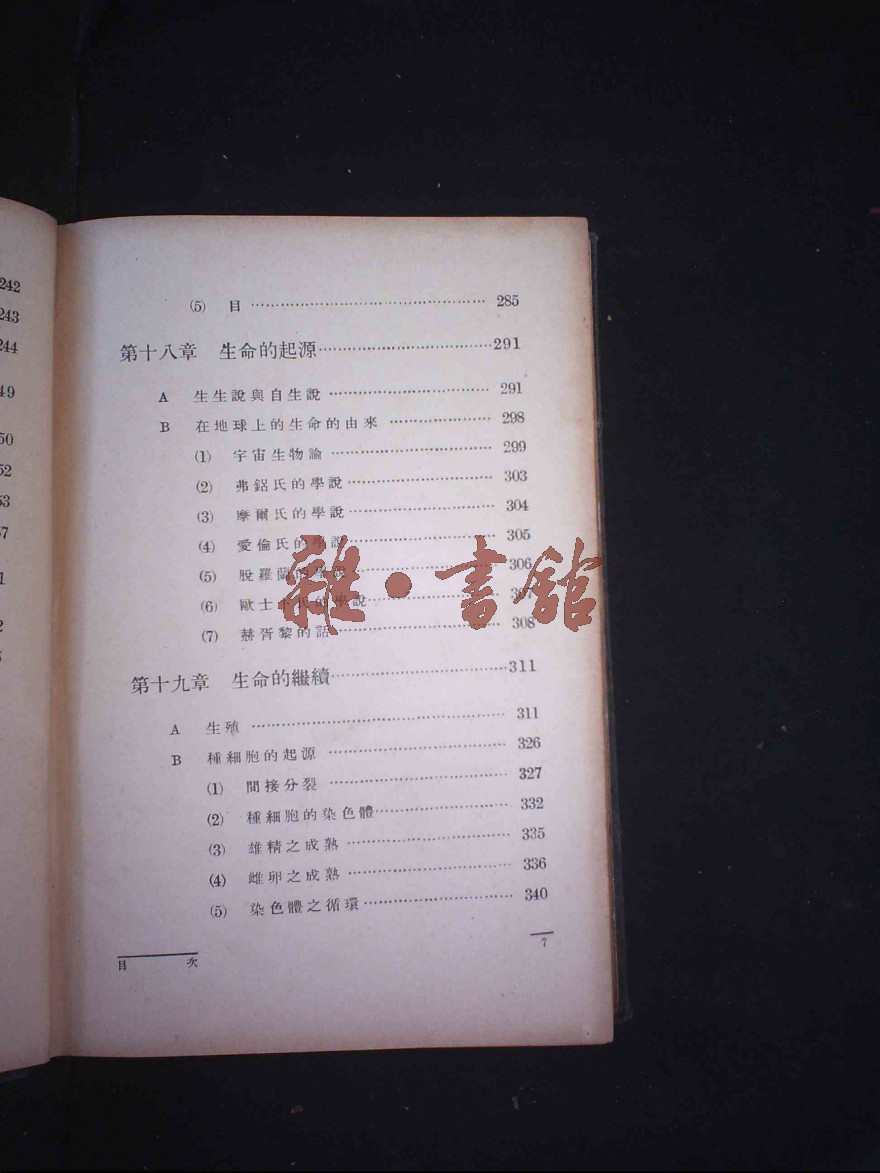 242
243
244
49
50
52
53
57
1
2
(5) 目 285
第十八章 生命的起源 291
A 生生說與自生說 291
B 在地球上的生命的由來 298
(1) 宇宙生物論 299
(2) 弗鋁氏的學說 303
(3) 摩爾氏的學說 304
(4) 愛倫氏的學說 305
(5) 脫羅蘭的學說 306
(6) 歐士 氏的學說 307
(7) 赫胥黎的話 308
雜·書館
第十九章 生命的繼續 311
A 生殖 311
B 種細胞的起源 326
(1) 間接分裂 327
(2) 種細胞的染色體 332
(3) 雄精之成熟 335
(4) 雌卵之成熟 336
(5) 染色體之循環 340
目 次
7